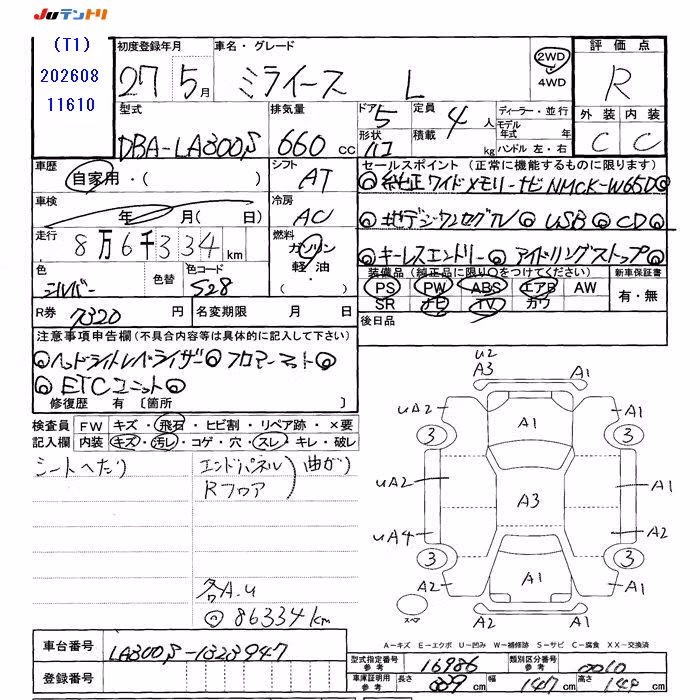 JUテントリ
(T1)
202608
11610
初度登録年月
27 5月
車名・グレード
ミライース L
2WD
4WD
評価点
R
外装 内装
C C
型式
DBA-LA300S
排気量
660 cc
ドア 5
形状 ハコ
定員 4人
積載 kg
ディーラー・並行
モデル年式 年
ハンドル 左・右
車歴
自家用・( )
シフト
AT
車検
年 月( 日)
冷房
AC
走行
8万6千334km
燃料
ガソリン
軽油
・( )
色
シルバー
色替
色コード
S28
R券 7320 円
名変期限 月 日
セールスポイント(正常に機能するものに限ります)
◎純正ワイドメモリーナビ NMCK-W65D◎
◎地デジワンセグTV◎USB◎CD◎
◎キーレスエントリー◎アイドリングストップ◎
装備品(純正品に限り○をつけてください)
PS PW ABS エアB AW
SR ナビ TV カワ
新車保証書
有・無
後日品
注意事項申告欄(不具合内容等は具体的に記入して下さい)
◎ヘッドライトレベライザー◎フロアーマット◎
◎ETCユニット◎
修復歴 有〔箇所 〕
検査員記入欄
FW キズ・飛石・ヒビ割・リペア跡・×要
内装 キズ・汚レ・コゲ・穴・スレ・キレ・破レ
シートへたり
エンドパネル
Rフロア
曲がり
各A.u
◎86334km
u2
A3
A1
uA2
A1
A1
3
3
uA2
A3
A1
uA4
A2
3
3
A2
A1
A1
A2
スペア
A−キズ E−エクボ U−凹み W−補修跡 S−サビ C−腐食 XX−交換済
車台番号
LA300S-1323947
登録番号
型式指定番号
参考
16986
類別区分番号
参考
0010
車庫証明用
参考
長さ 339 cm
幅 147 cm
高さ 149 cm